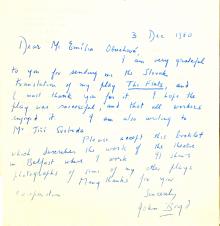 3 Dec 1980
Dear Mr. Emilia Obuchová,
I am very grateful
to you for sending me the Slovak
translation of my play The Flats, and
I must thank you for it. I hope the
play was successful, and that all workers
enjoyed it. I am also writing to
Mr Jiří
Please accept this booklet
which describes the work of the theatre
in Belfast where I work. It shows
photographs of some of my other plays
Many thanks for your
cooperation
Sincerely
John Boyd